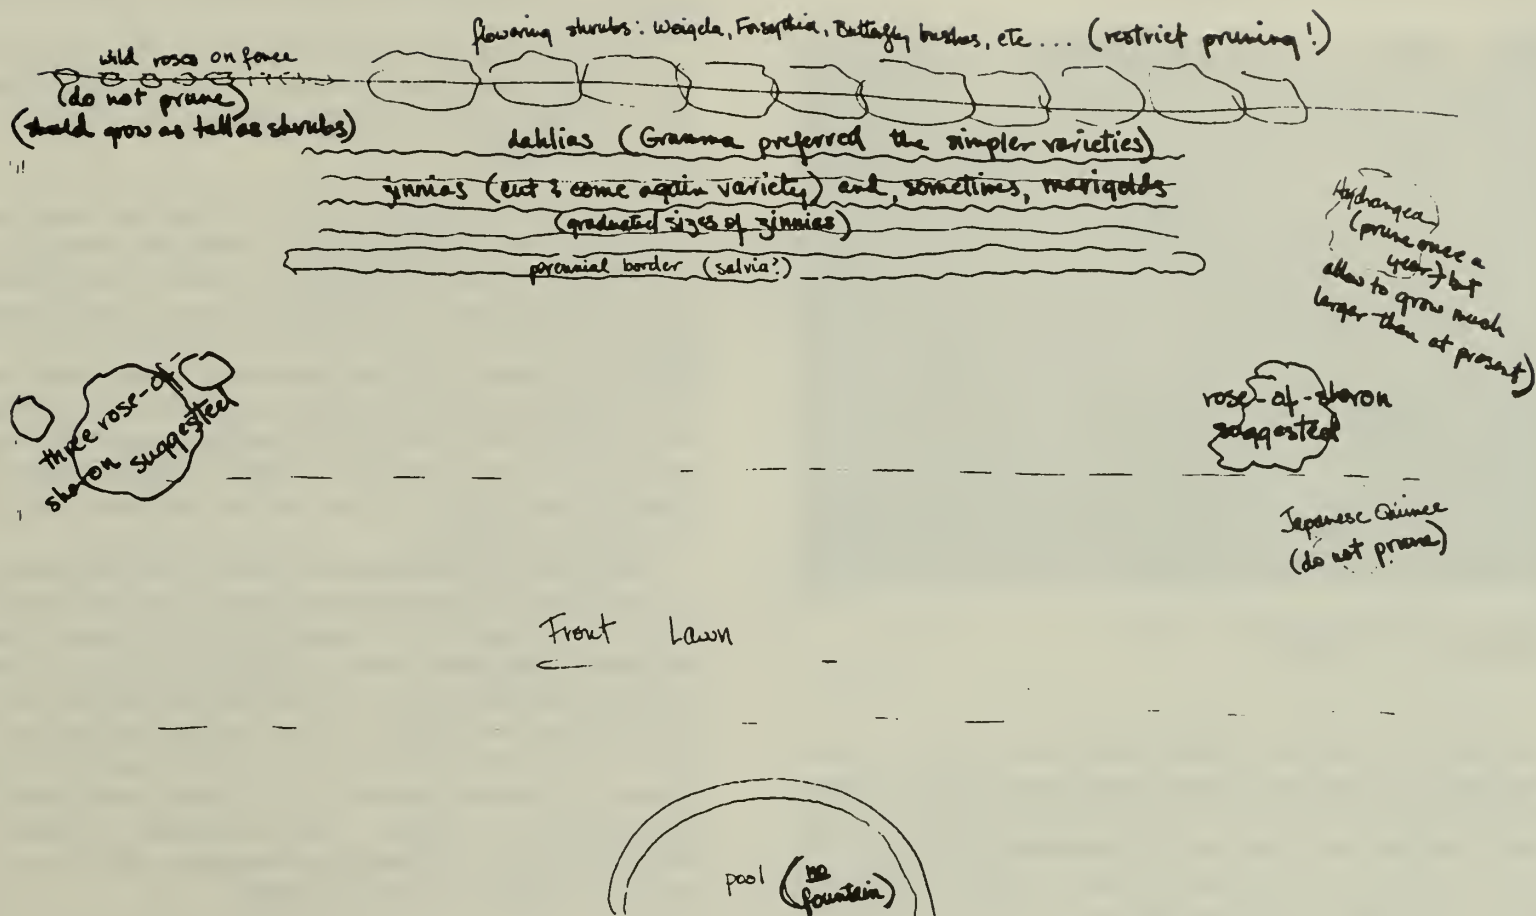 flowering shrubs: Weigela, Forsythia, Butterfly bushes, etc... (restrict pruning!)
wild roses on fence
(do not prune)
(should grow as tall as shrubs)
dahlias (Gramma preferred the simpler varieties)
zinnias (cut & come again variety) and, sometimes, marigolds
(graduated sizes of zinnias)
perennial border (salvia?)
Hydrangea
(prune once a
year) but
allow to grow much
larger than at present)
three rose-of-
sharon suggested
rose-of-sharon
suggested
Japanese Quince
(do not prune)
Front Lawn
pool (no
fountain)